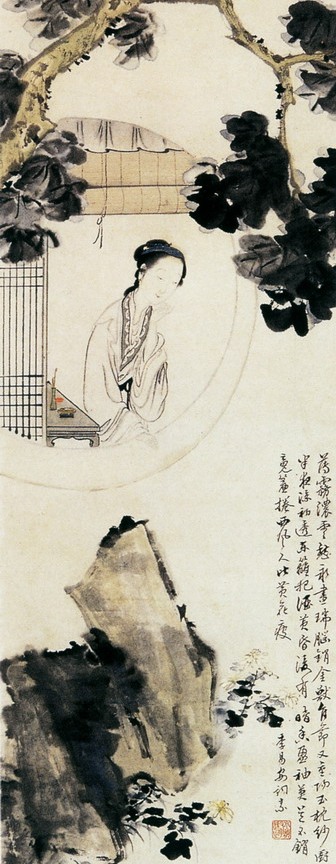 薄霧濃雲愁永晝瑞腦銷金獸佳節又重陽玉枕紗廚
半夜涼初透東籬把酒黃昏後有暗香盈袖莫道不銷
魂簾捲西風人比黃花瘦
李易安詞意